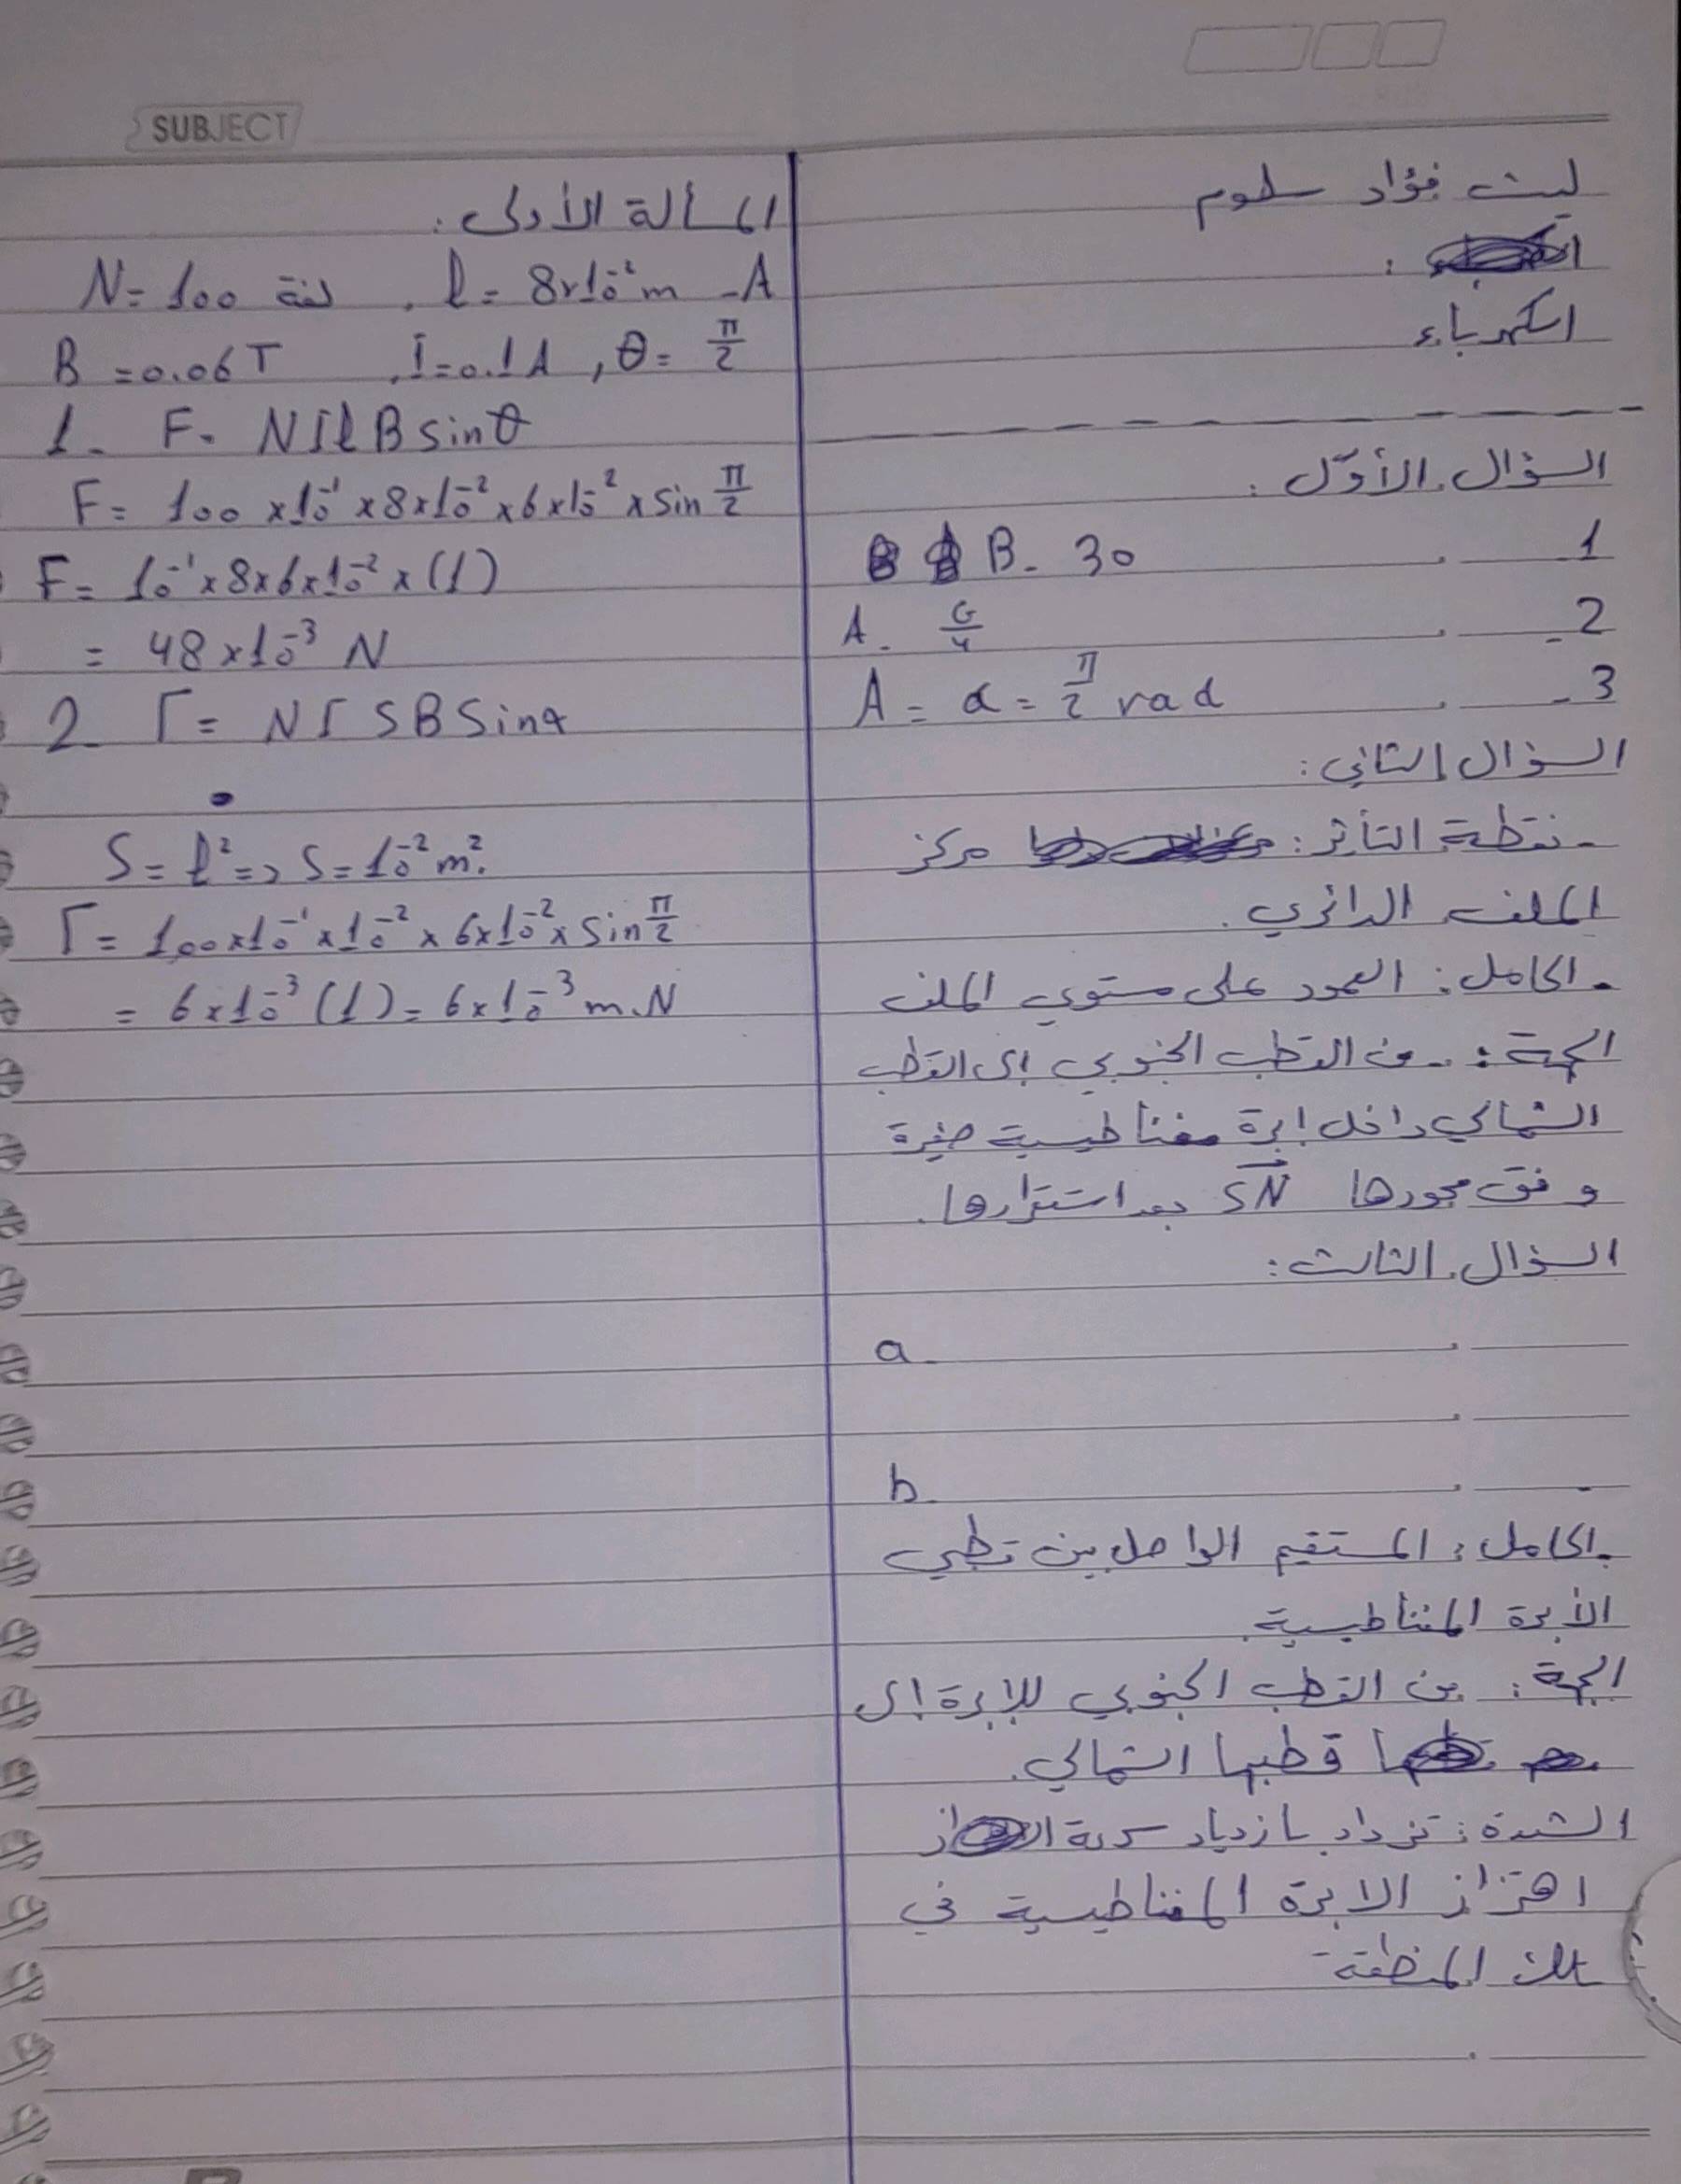 SUBJECT
ليث فؤاد سلوم
الكهرباء
السؤال الأوّل:
1 B. 30
2 - A. G/4
3 - A = α = π/2 rad
السؤال الثاني:
- نقطة التأثير: مركز
الملف الدائري.
- الحامل: العمود على مستوي الملف
الجهة: من القطب الجنوبي إلى القطب
الشمالي داخل إبرة مغناطيسية صغيرة
وفق محورها SN⃗ بعد استقرارها.
السؤال الثالث:
a.
b.
- الحامل: المستقيم الواصل بين قطبي
الأبرة المغناطيسية.
الجهة: من القطب الجنوبي للإبرة إلى
قطبها الشمالي.
الشدة: تزداد بازدياد سرعة
اهتزاز الابرة المغناطيسية في
تلك المنطقة
المسألة الأولى:
A- l = 8×10⁻² m , N = 100 لفة
B = 0.06 T , I = 0.1 A , θ = π/2
1. F = N I l B sin θ
F = 100 × 10⁻¹ × 8 × 10⁻² × 6 × 10⁻² × sin π/2
F = 10⁻¹ × 8 × 6 × 10⁻² × (1)
= 48 × 10⁻³ N
2. Γ = N I S B Sin α
S = l² => S = 10⁻² m².
Γ = 100 × 10⁻¹ × 10⁻² × 6 × 10⁻² × Sin π/2
= 6 × 10⁻³ (1) = 6 × 10⁻³ m.N